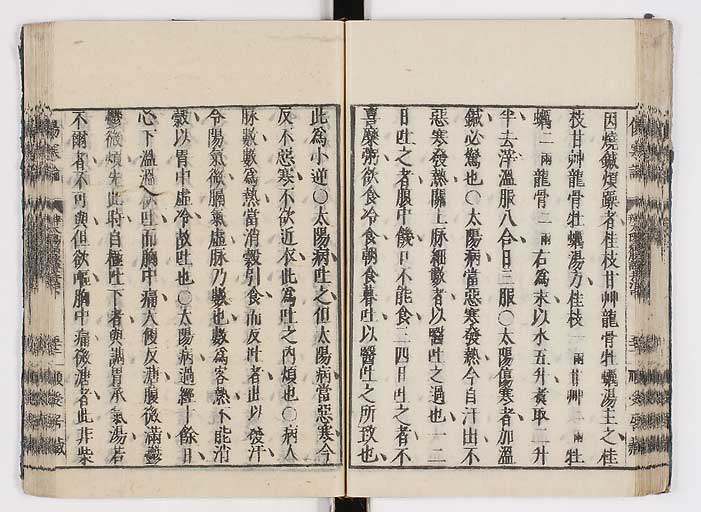 因燒鍼煩躁者桂枝甘艸龍骨牡蠣湯主之桂
枝甘艸龍骨牡蠣湯方桂枝一兩甘艸二兩牡
蠣二兩龍骨二兩右為末以水五升煮取二升
半去滓溫服八合日三服〇太陽傷寒者加溫
鍼必驚也〇太陽病當惡寒發熱今自汗出不
惡寒發熱關上脉細數者以醫吐之過也一二
日吐之者腹中饑口不能食三四日吐之者不
喜糜粥欲食冷食朝食暮吐以醫吐之所致也
此為小逆〇太陽病吐之但太陽病當惡寒今
反不惡寒不欲近衣此為吐之內煩也〇病人
脉數數為熱當消穀引食而反吐者此以發汗
令陽氣微膈氣虛脉乃數也數為客熱不能消
穀以胃中虛冷故吐也〇太陽病過經十餘日
心下溫溫欲吐而胸中痛大便反溏腹微滿鬱
鬱微煩先此時自極吐下者與調胃承氣湯若
不爾者不可與但欲嘔胸中痛微溏者此非柴